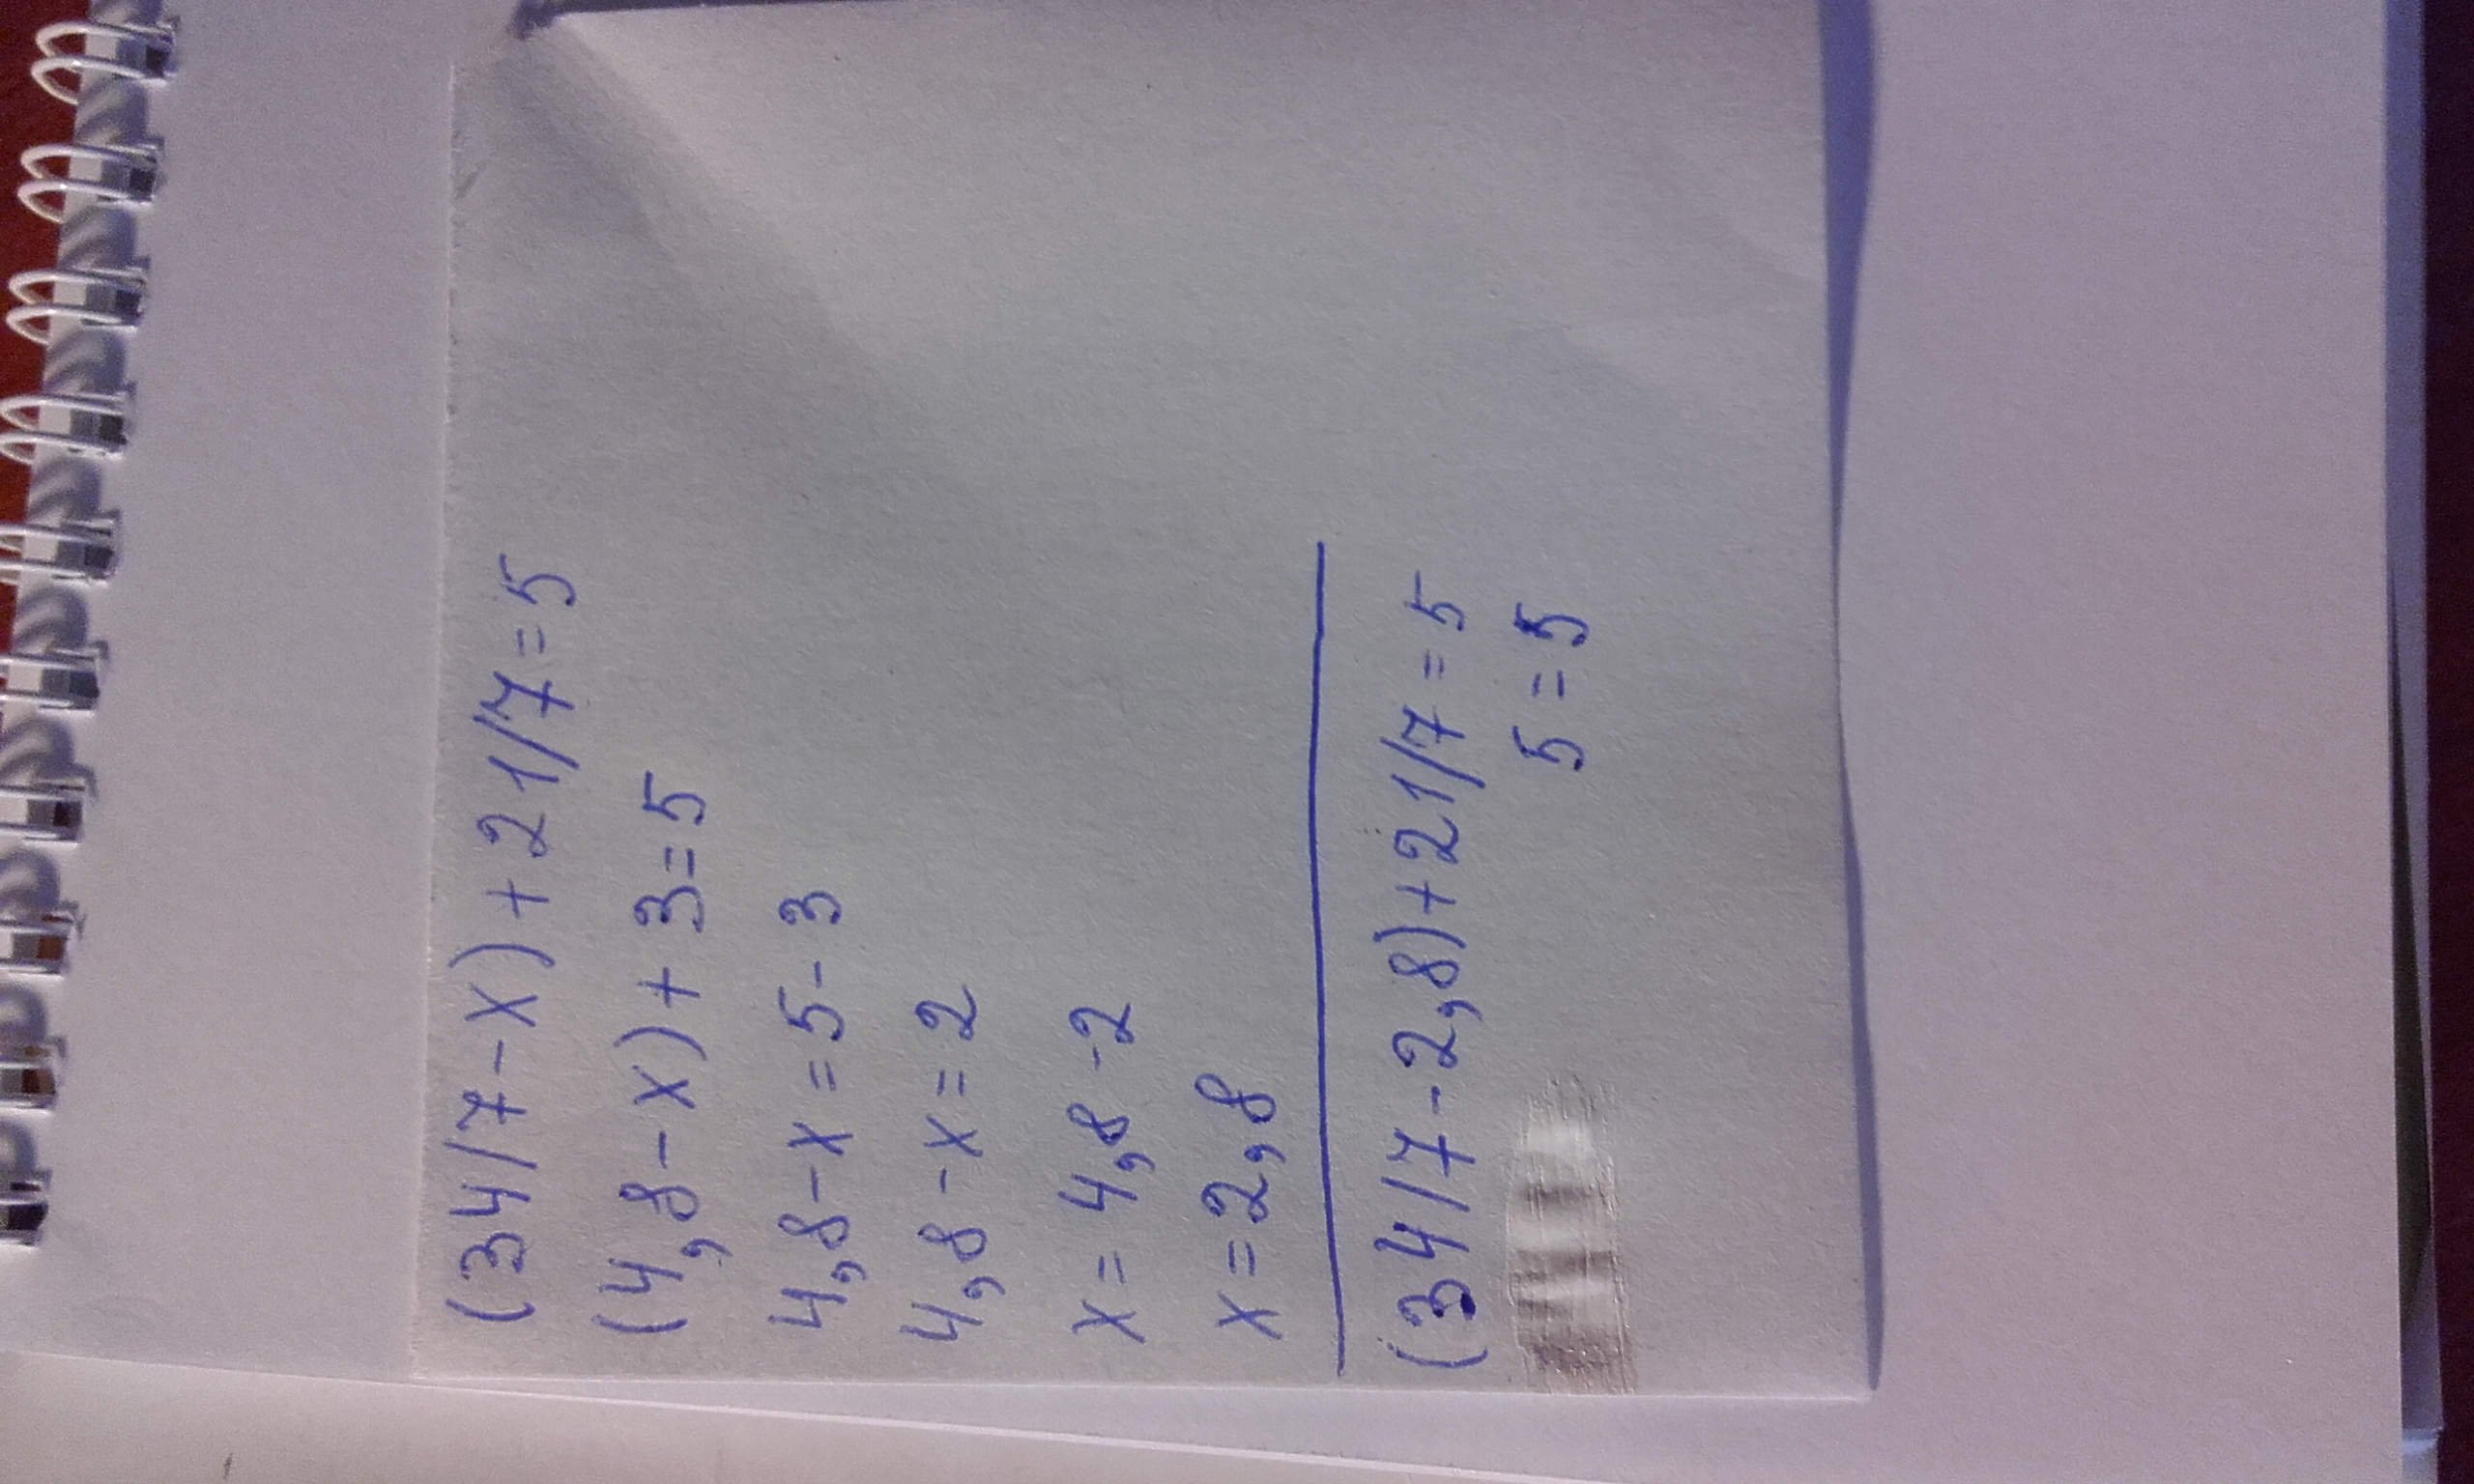 (34/7-x)+21/7=5
(4,8-x)+3=5
4,8-x=5-3
4,8-x=2
x=4,8-2
x=2,8
(34/7-2,8)+21/7=5
5=5